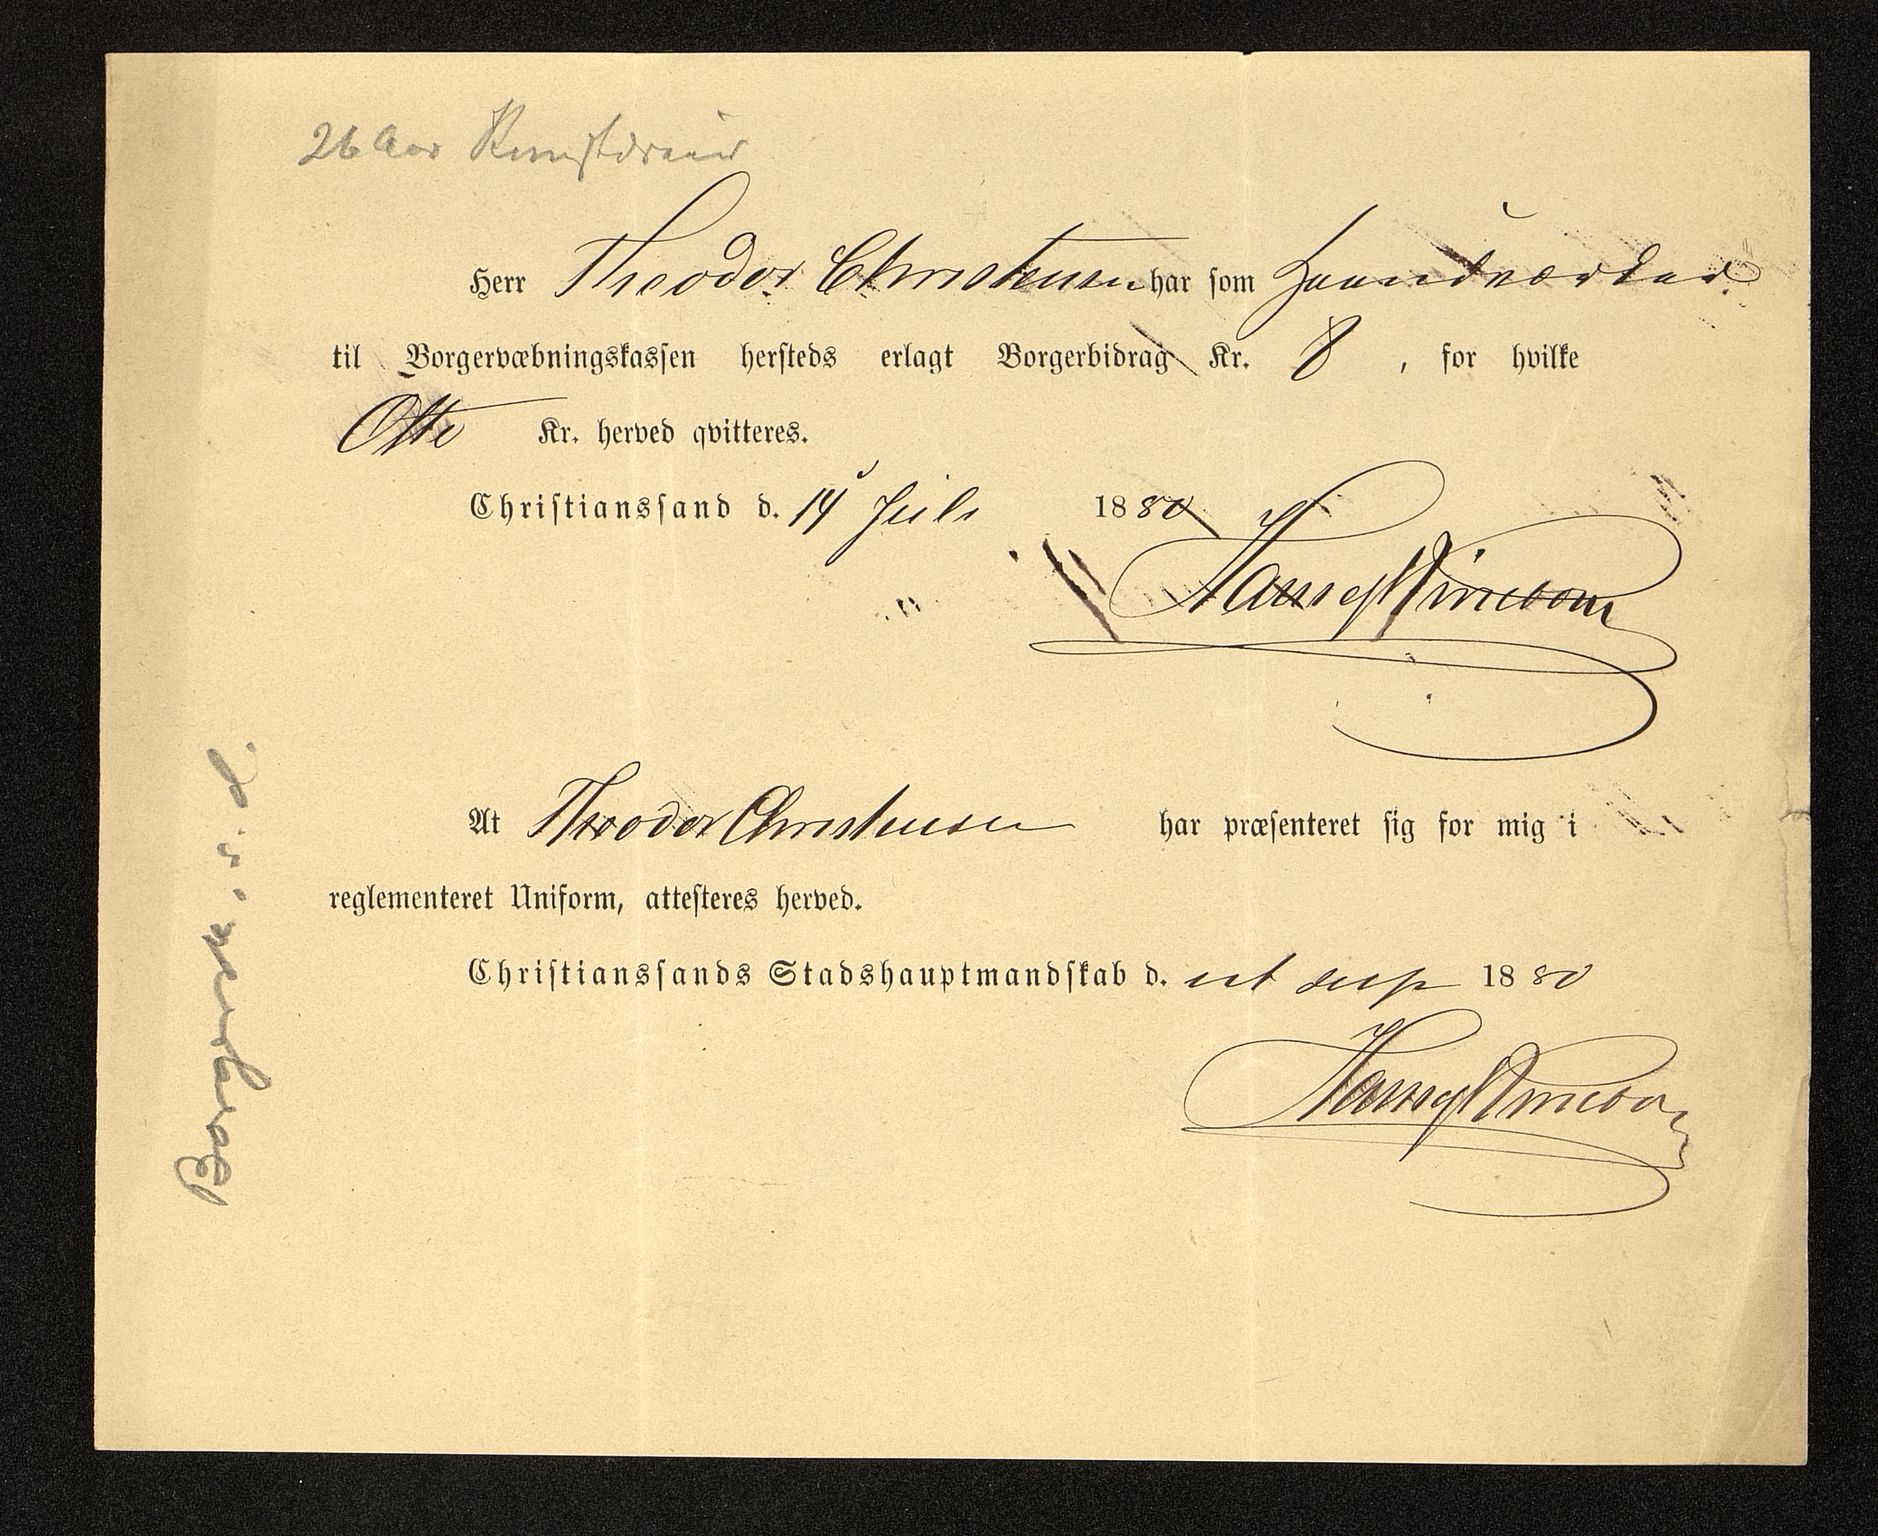 26 Aar Kunstdreier
Herr Theodor Christensen har som Haandværker
til Borgervæbningskassen hersteds erlagt Borgerbidrag Kr. 8, for hvilke
Otte Kr. herved qvitteres.
Christianssand d. 14 Juli 1880
At Theodor Christensen har præsenteret sig for mig i
reglementeret Uniform, attesteres herved.
Christianssands Stadshauptmandskab d. ut sup 1880
Borgersk.